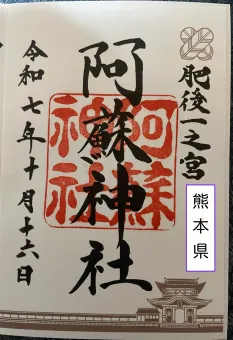 肥後一之宮
阿蘇神社
阿蘇神社
令和七年十月十六日
熊本県